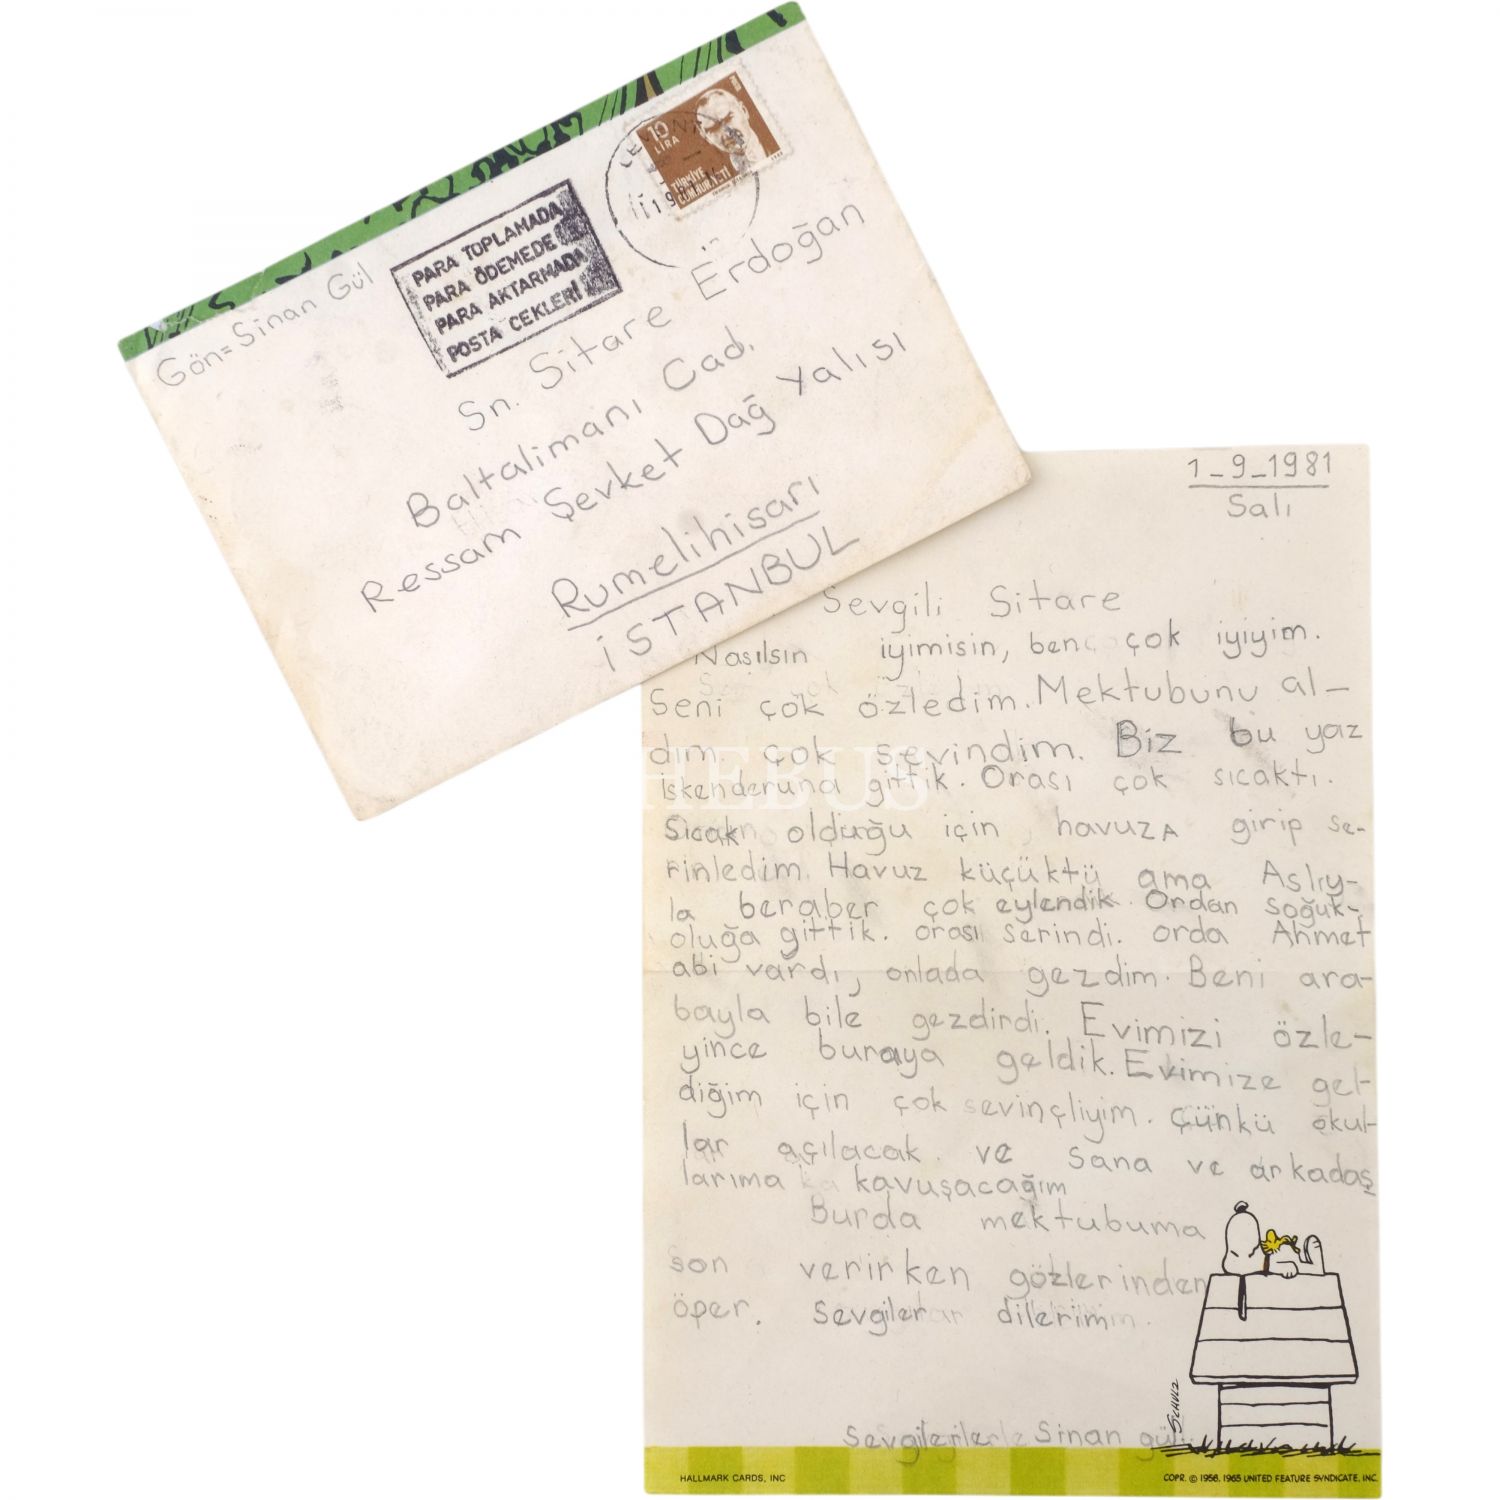 10
LİRA
TÜRKİYE
PARA TOPLAMADA
PARA ÖDEMEDE
PARA AKTARMADA
POSTA CEKLERİ
Gön=Sinan Gül
Sn. Sitare Erdoğan
Baltalimanı Cad.
Ressam Şevket Dağ Yalısı
Rumelihisarı
İSTANBUL
1_9_1981
Salı
Sevgili Sitare
Nasılsın iyimisin, ben çok iyiyim.
Seni çok özledim. Mektubunu al-
dım çok sevindim. Biz bu yaz
İskenderuna gittik. Orası çok sıcaktı.
Sıcak olduğu için havuza girip se-
rinledim. Havuz küçüktü ama Aslıy-
la beraber çok eylendik. Ordan soğuk-
oluğa gittik. orası serindi. orda Ahmet
abi vardı, onlada gezdim. Beni ara-
bayla bile gezdirdi. Evimizi özle-
yince buraya geldik. Evimize gel-
diğim için çok sevinçliyim. Çünkü okul-
lar açılacak. ve sana ve arkadaş
larıma kavuşacağım
Burda mektubuma
son verirken gözlerinden
öper. Sevgiler dilerim.
Sevgilerle Sinan gül
SCHULZ
HALLMARK CARDS, INC
COPR. © 1958, 1965 UNITED FEATURE SYNDICATE, INC.
HEBUS